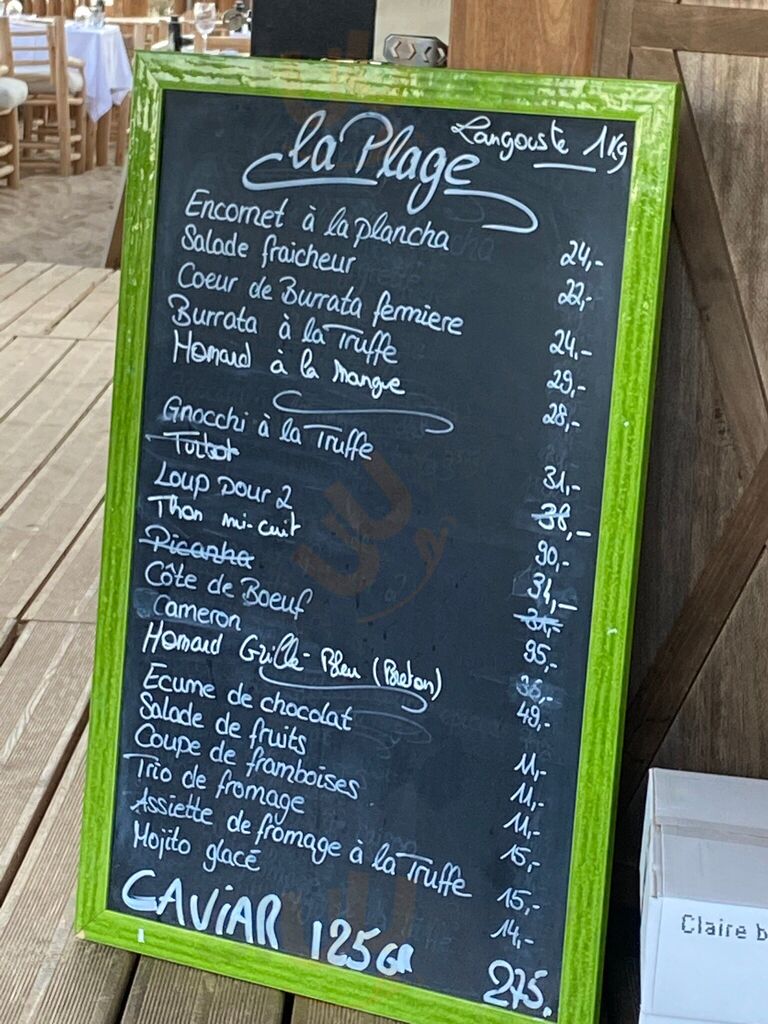 Langouste 1Kg
la Plage
Encornet à la plancha 24,-
Salade fraicheur 22,-
Coeur de Burrata fermiere 24,-
Burrata à la Truffe 29,-
Homard à la mangue 28,-
Gnocchi à la Truffe 31,-
Turbot 38,-
Loup pour 2 90,-
Thon mi-cuit 31,-
Picanha 31,-
Côte de Boeuf 95,-
Cameron 36,-
Homard Grillé Bleu (Breton) 49,-
Ecume de chocolat 11,-
Salade de fruits 11,-
Coupe de framboises 11,-
Trio de fromage 15,-
Assiette de fromage à la Truffe 15,-
Mojito glacé 14,-
CAVIAR 125GR 275.
Claire b